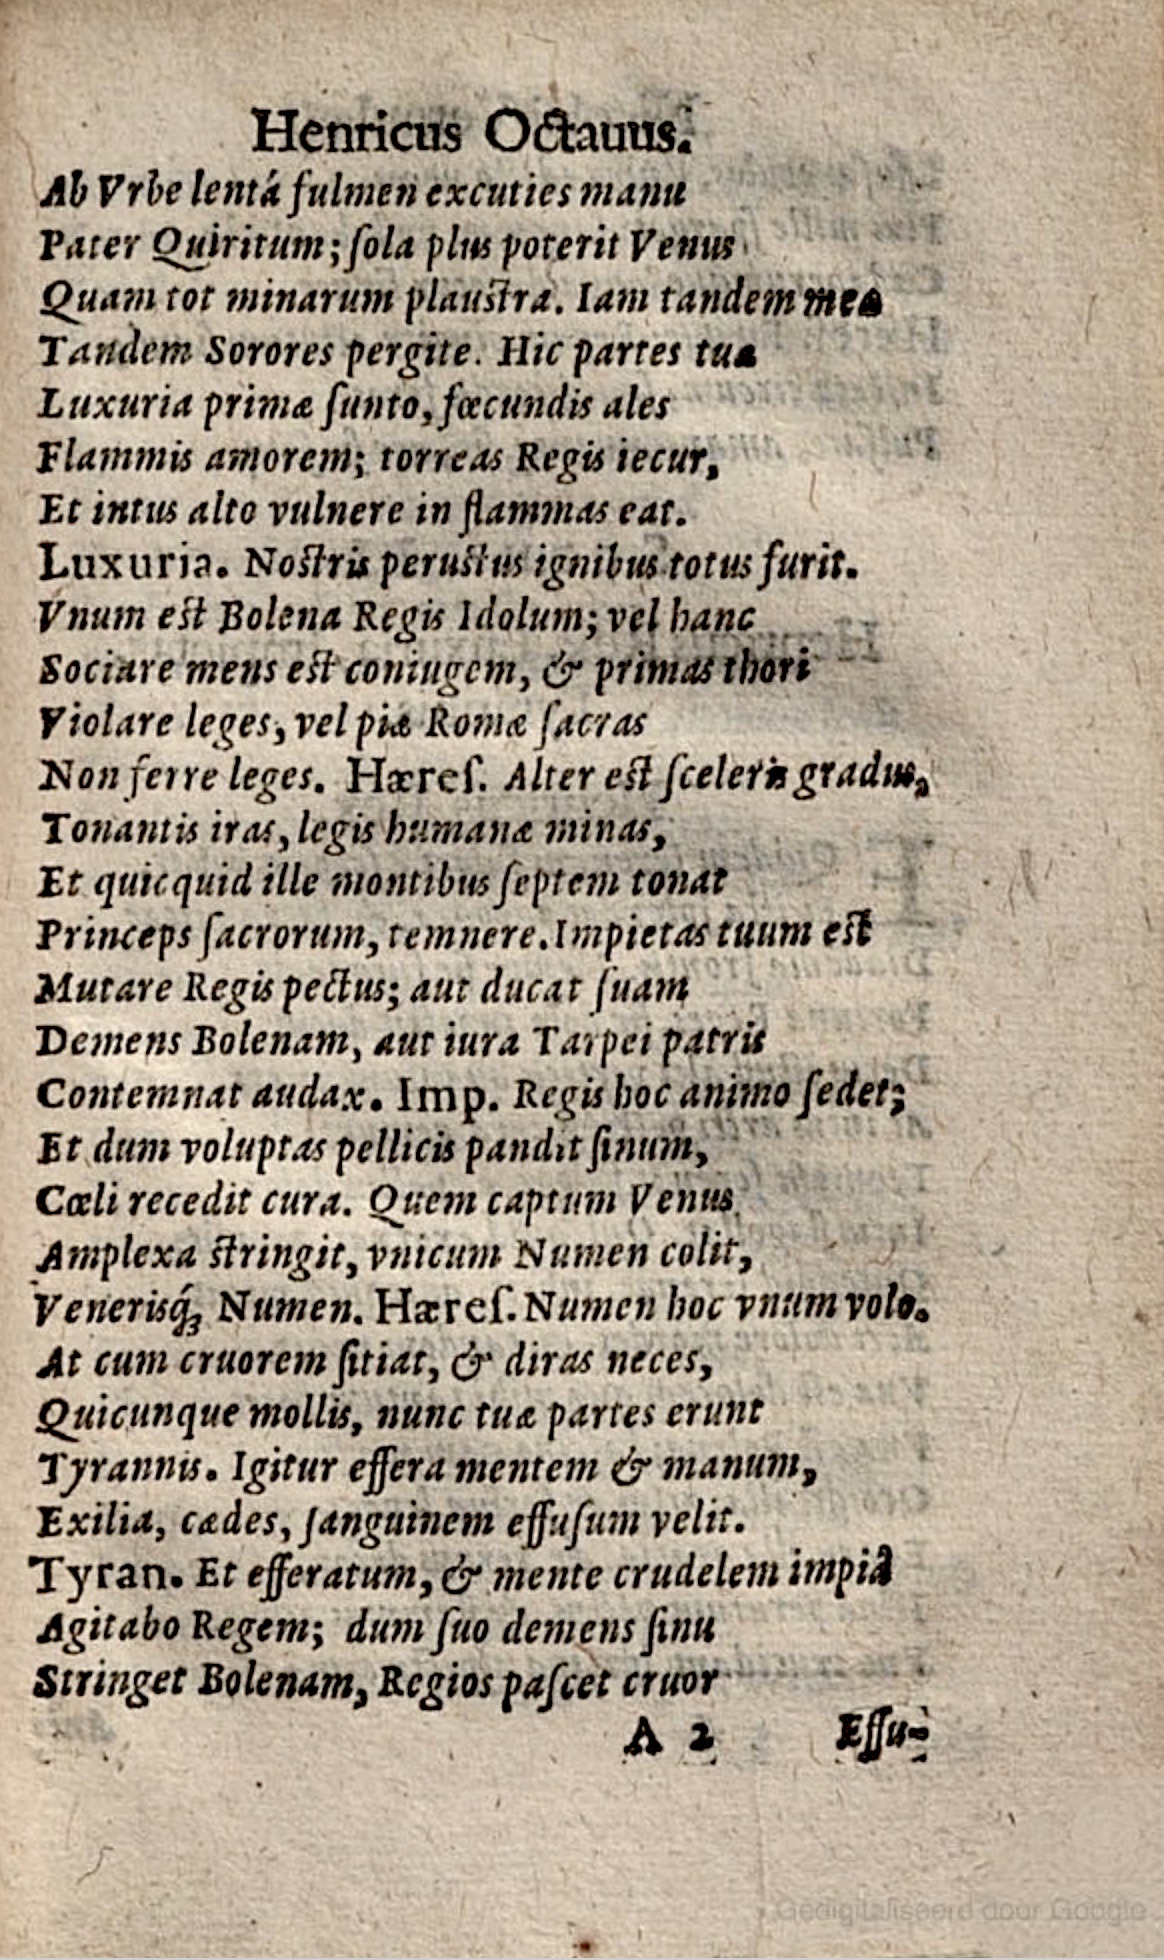 Henricus Octauus.
Ab Vrbe lentá fulmen excuties manu
Pater Quiritum; ſola plus poterit Venus
Quam tot minarum plauſtra. Iam tandem meæ
Tandem Sorores pergite. Hic partes tuæ
Luxuria primæ ſunto, fœcundis ales
Flammis amorem; torreas Regis iecur,
Et intus alto vulnere in flammas eat.
Luxuria. Noſtris peruſtus ignibus totus furit.
Vnum eſt Bolena Regis Idolum; vel hanc
Sociare mens eſt coniugem, & primas thori
Violare leges, vel piæ Romæ ſacras
Non ferre leges. Hæreſ. Alter eſt ſceleris gradus,
Tonantis iras, legis humanæ minas,
Et quicquid ille montibus ſeptem tonat
Princeps ſacrorum, temnere. Impietas tuum eſt
Mutare Regis pectus; aut ducat ſuam
Demens Bolenam, aut iura Tarpei patris
Contemnat audax. Imp. Regis hoc animo ſedet;
Et dum voluptas pellicis pandit ſinum,
Cœli recedit cura. Quem captum Venus
Amplexa ſtringit, vnicum Numen colit,
Venerisq́ꝫ Numen. Hæreſ. Numen hoc vnum volo.
At cum cruorem ſitiat, & diras neces,
Quicunque mollis, nunc tuæ partes erunt
Tyrannis. Igitur effera mentem & manum,
Exilia, cædes, ſanguinem effuſum velit.
Tyran. Et efferatum, & mente crudelem impiâ
Agitabo Regem; dum ſuo demens ſinu
Stringet Bolenam, Regios paſcet cruor
A 2 Effu-
Gedigitaliseerd door Google